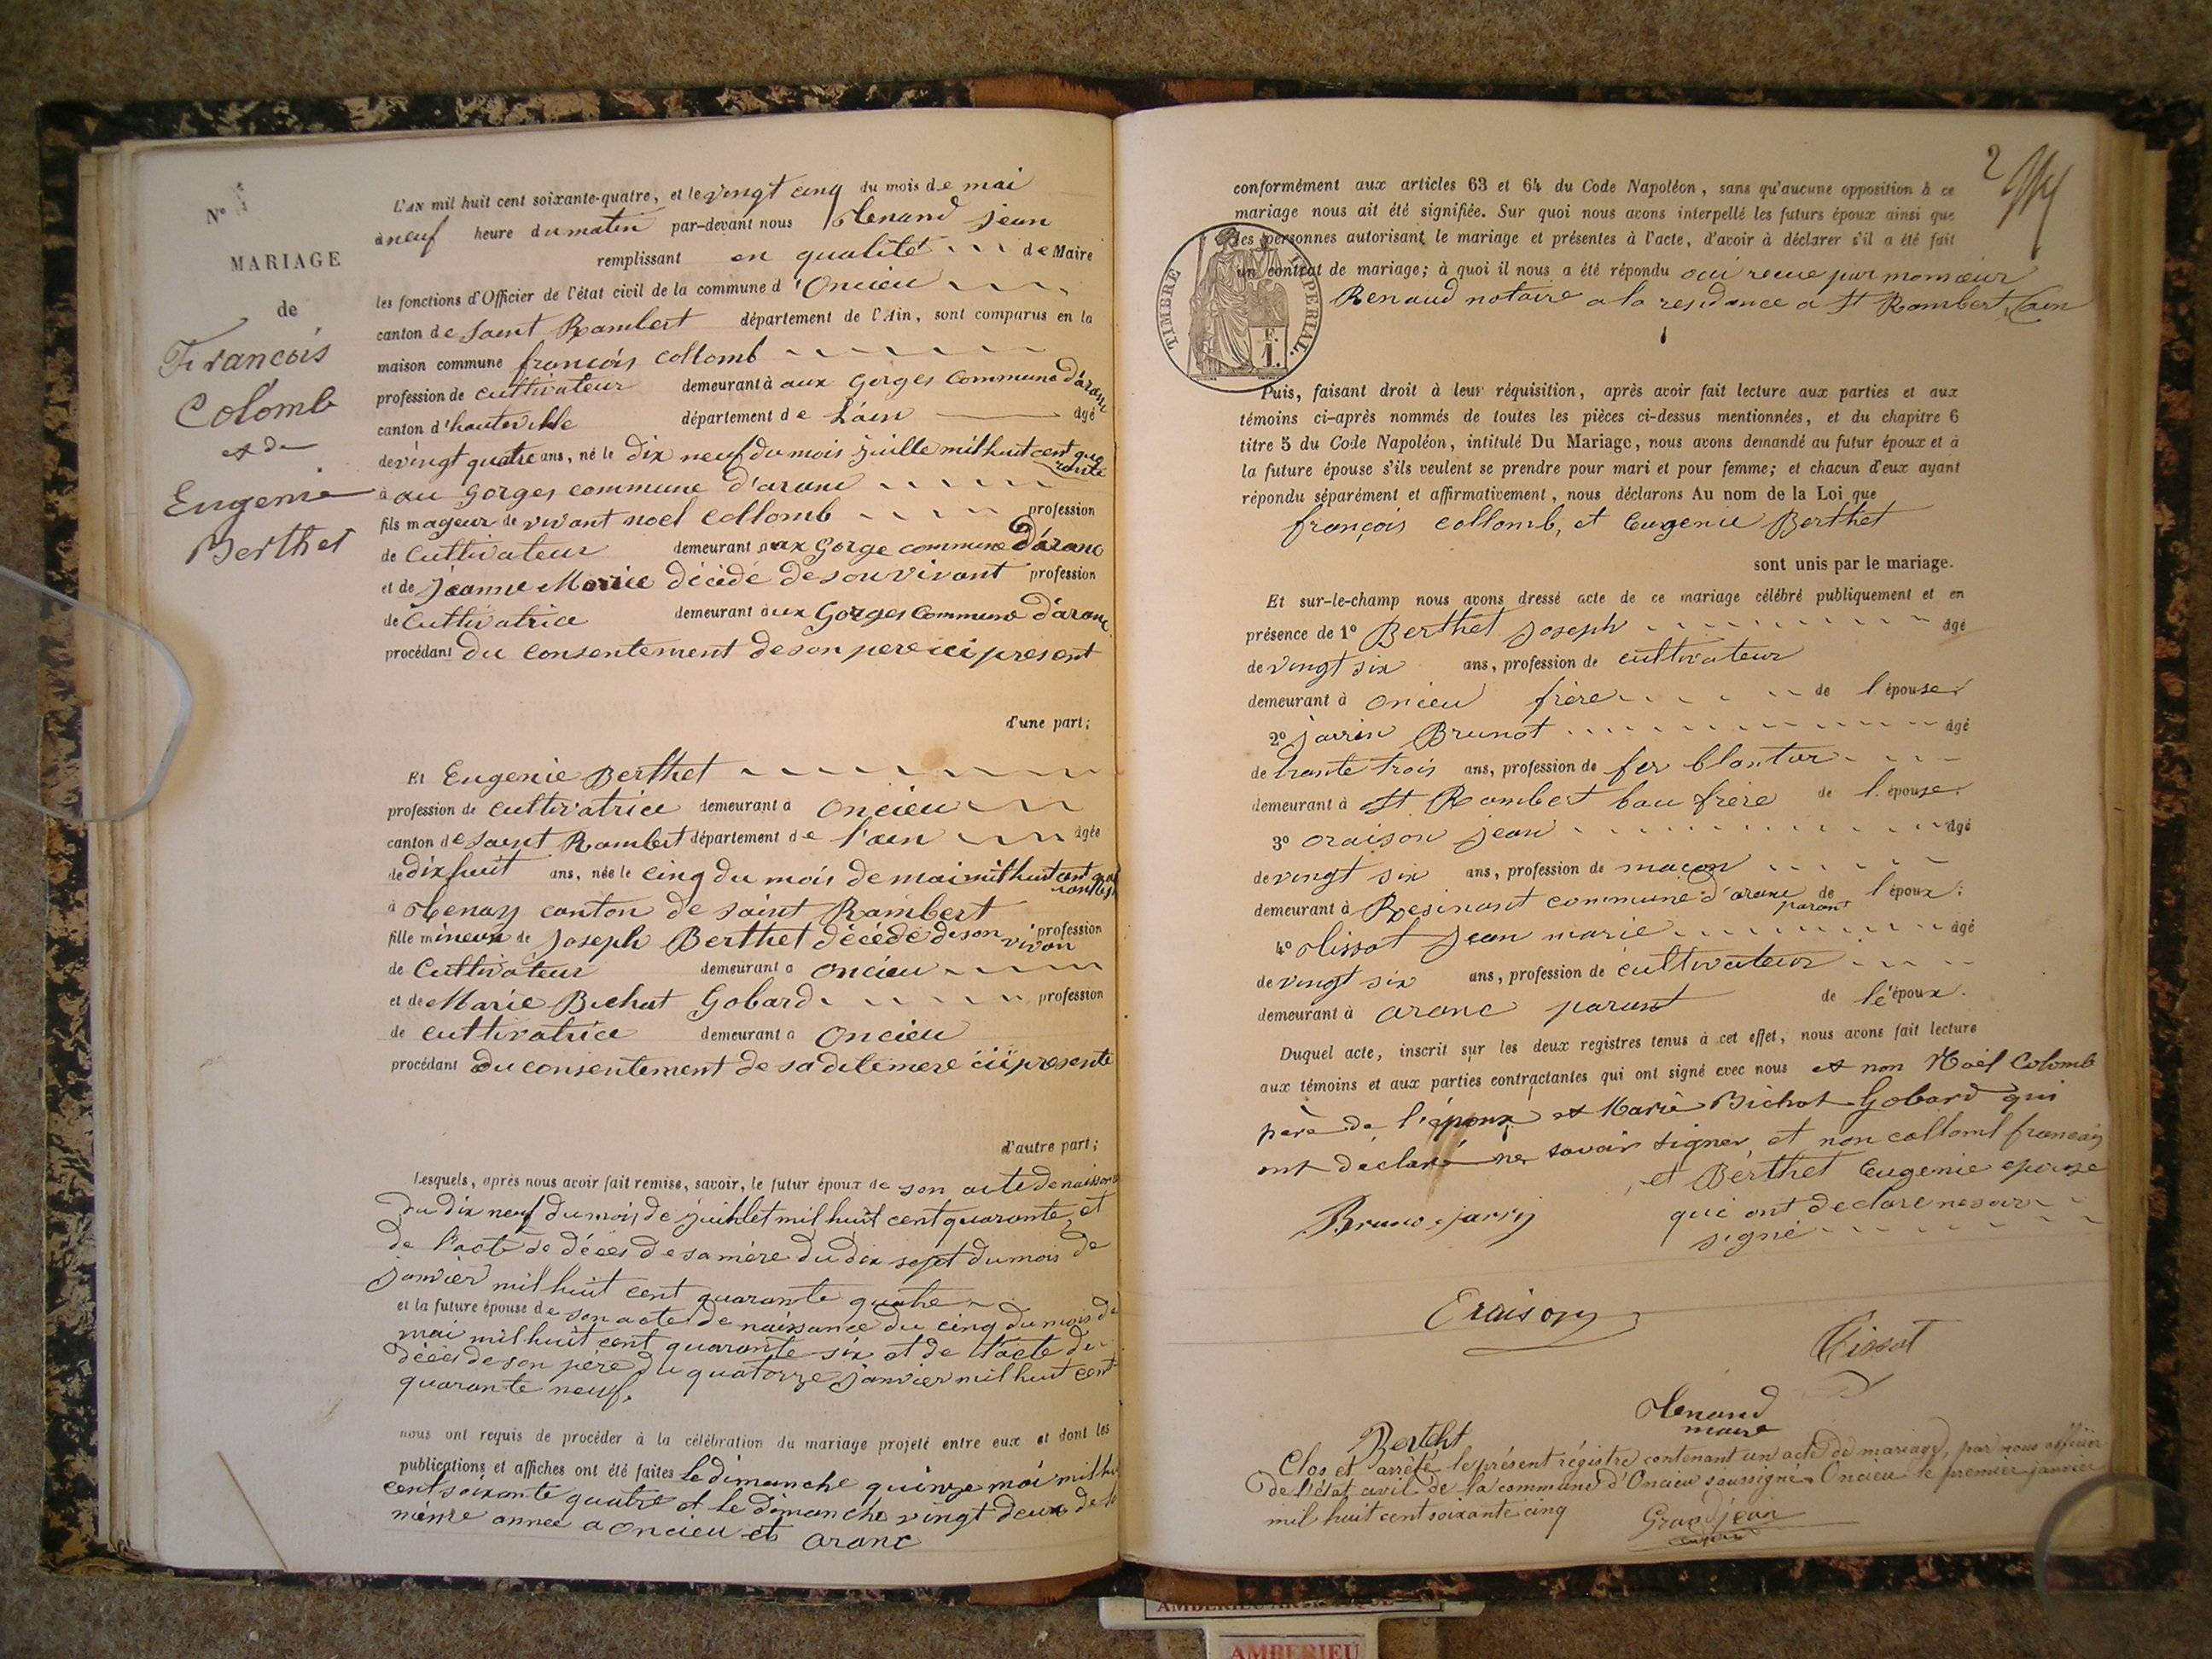 N°
MARIAGE
de
Francois
Colomb
et de
Eugenie
Berthet
L'AN mil huit cent soixante-quatre, et le vingt cinq du mois de mai
à neuf heure du matin par-devant nous Tenand jean
remplissant en qualité de Maire
les fonctions d'Officier de l'état civil de la commune d'Oncieu
canton de Saint Rambert département de l'Ain, sont comparus en la
maison commune françois collomb
profession de cultivateur demeurant à aux Gorges commune d'aranc
canton d'hauteville département de L'ain âgé
de vingt quatre ans, né le dix neuf du mois juille mil huit cent qua
rante
à au Gorges commune d'aranc
fils mageur de vivant noel collomb profession
de cultivateur demeurant a aux Gorge commune d'aranc
et de jeanne Marie décédé de son vivant profession
de Cultivatrice demeurant à aux Gorges commune d'aranc
procédant du consentement de son pere ici present
d'une part;
Et Eugenie Berthet
profession de cultivatrice demeurant a oncieu
canton de Saint Rambert département de l'ain âgée
de dix huit ans, née le cinq du mois de mai mil huit cent qua
rante six
à Tenay canton de saint Rambert
fille mineure de joseph Berthet décédé de son vivan profession
de Cultivateur demeurant a oncieu
et de Marie Bichat Gobard profession
de cultivatrice demeurant a oncieu
procédant du consentement de sa dite mere ici presente
d'autre part;
Lesquels, après nous avoir fait remise, savoir, le futur époux de son acte de naissance
du dix neuf du mois de juihlet mil huit cent quarante et
de l'acte de décès de sa mère du dix sept du mois de
janvier mil huit cent quarante quatre
et la future épouse de son acte de naissance du cinq du mois de
mai mil huit cent quarante six et de l'acte du
décès de son père du quatorze janvier mil huit cent
quarante neuf.
nous ont requis de procéder à la célébration du mariage projeté entre eux et dont les
publications et affiches ont été faites le dimanche quinze mai mil hui
cent soixante quatre et le dimanche vingt deux de la
même annee a oncieu et aranc
2
conformément aux articles 63 et 64 du Code Napoléon, sans qu'aucune opposition à ce
mariage nous ait été signifiée. Sur quoi nous avons interpellé les futurs époux ainsi que
les personnes autorisant le mariage et présentes à l'acte, d'avoir à déclarer s'il a été fait
un contrat de mariage; à quoi il nous a été répondu oui recue par monsieur
Renaud notaire a la residance a St Rambert, ain
TIMBRE IMPERIAL.
F.
1.
Puis, faisant droit à leur réquisition, après avoir fait lecture aux parties et aux
témoins ci-après nommés de toutes les pièces ci-dessus mentionnées, et du chapitre 6
titre 5 du Code Napoléon, intitulé Du Mariage, nous avons demandé au futur époux et à
la future épouse s'ils veulent se prendre pour mari et pour femme; et chacun d'eux ayant
répondu séparément et affirmativement, nous déclarons Au nom de la Loi que
françois collomb, et Eugenie Berthet
sont unis par le mariage.
Et sur-le-champ nous avons dressé acte de ce mariage célébré publiquement et en
présence de 1° Berthet joseph âgé
de vingt six ans, profession de cultivateur
demeurant à oncieu frère de l'épouse
2° jarrin Brunot âgé
de trante trois ans, profession de fer blantier
demeurant à St Rambert bau frère de l'épouse
3° oraison jean âgé
de vingt six ans, profession de maçon
demeurant à Resinant commune d'aranc parant de l'époux;
4° Tissot jean marie âgé
de vingt six ans, profession de cultivateur
demeurant à aranc parant de lé'époux.
Duquel acte, inscrit sur les deux registres tenus à cet effet, nous avons fait lecture
aux témoins et aux parties contractantes qui ont signé avec nous et non Noël Colomb
père de l'époux et Marie Bichat Gobard qui
ont déclaré ne savoir signer et non collomb françois
et Berthet Eugenie epouse
qui ont declare ne savoir
signé
Bruno jarrin
Eraison
Tissot
Tenand
maire
Bertht
Clos et arrêté le présent régistre contenant un acte de mariage, par nous officier
de l'état civil de la commune d'Oncieu soussigné. Oncieu le premier janvier
mil huit cent soixante cinq
AMBERIEU